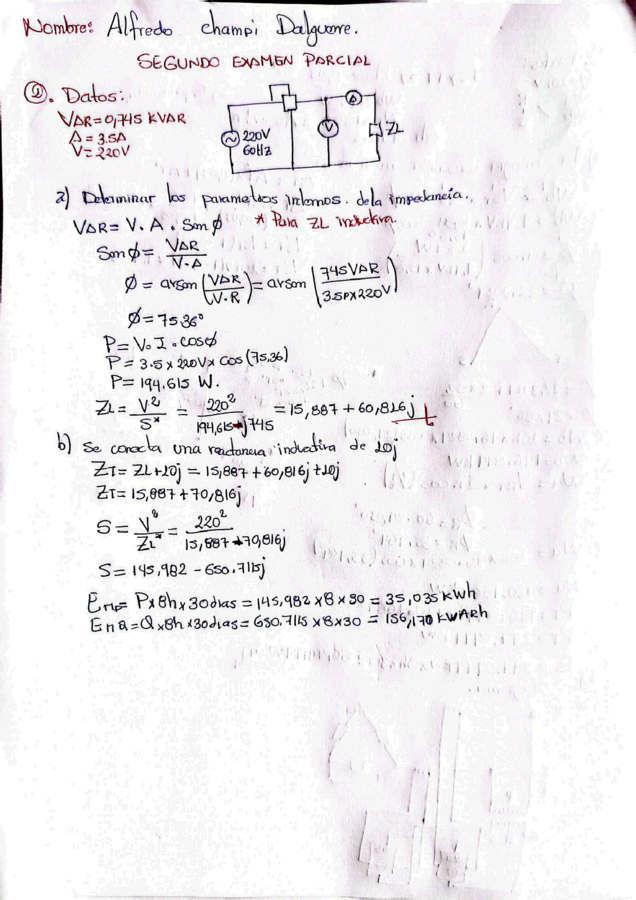 Nombre: Alfredo champi Dalguerre.
SEGUNDO EXAMEN PARCIAL
②. Datos:
VAR = 0,745 KVAR
A = 3.5A
V = 220V
220V
60Hz
V
A
ZL
a) Determinar los parametros internos de la impedancia.
VAR = V. A. Senφ * Para ZL inductiva.
Senφ = VAR / V.A
φ = arsen (VAR / V.R) = arsen (745VAR / 3.5A x 220V)
φ = 75.36°
P = V. I. cosφ
P = 3.5 x 220V x cos (75,36)
P = 194.615 W.
ZL = V² / S* = 220² / 194,615-j745 = 15,887 + 60,816j
b) Se conecta una reactancia inductiva de 10j
ZT = ZL + 10j = 15,887 + 60,816j + 10j
ZT = 15,887 + 70,816j
S = V² / ZL* = 220² / 15,887 + 70,816j
S = 145,982 - 650.7115j
Em = P x 8h x 30dias = 145,982 x 8 x 30 = 35,035 kWh
EmQ = Q x 8h x 30dias = 650.7115 x 8 x 30 = 156,170 KWARh